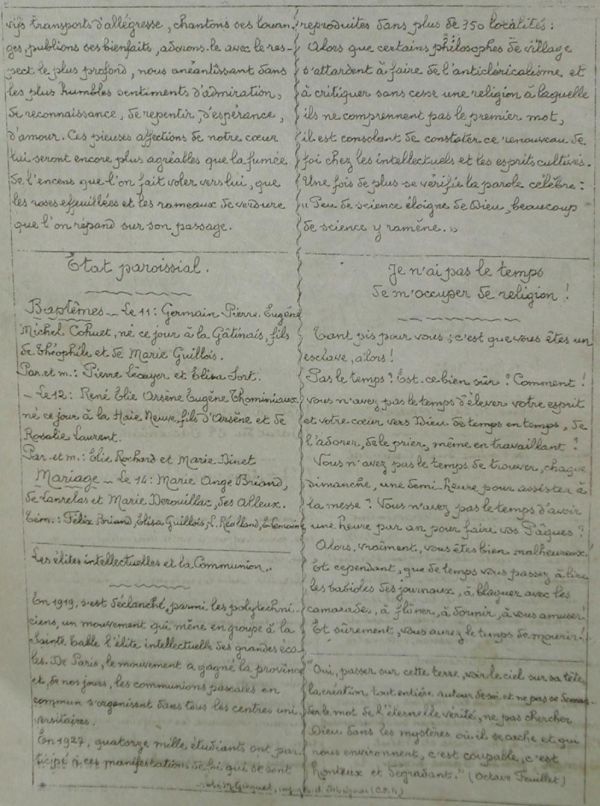 vifs transports d'allégresse, chantons ses louan-
ges, publions ses bienfaits, adorons-le avec le res-
pect le plus profond, nous anéantissant dans
les plus humbles sentiments d'admiration,
de reconnaissance, de repentir, d'espérance,
d'amour. Ces pieuses affections de notre cœur
lui seront encore plus agréables que la fumée
de l'encens que l'on fait voler vers lui, que
les roses effeuillées et les rameaux de verdure
que l'on répand sur son passage.
État paroissial.
Baptêmes - Le 11: Germain Pierre Eugène
Michel Cohuet, né ce jour à la Gâtinais, fils
de Théophile et de Marie Guillois.
Par. et m.: Pierre Lécuyer et Elisa Sort.
- Le 12: René Elie Arsène Eugène Thominiaux
né ce jour à la Haie Neuve, fils d'Arsène et de
Rosalie Laurent.
Par. et m.: Elie Rochard et Marie Dinet
Mariage - Le 14: Marie Ange Briand,
de Lanrelas et Marie Derouillac, des Alleux.
Tém.: Félix Briand, Elisa Guillois,
Les élites intellectuelles et la Communion.
En 1919, s'est déclanché, parmi les polytechni-
ciens, un mouvement qui mène en groupe à la
Sainte Table l'élite intellectuelle des grandes éco-
les. De Paris, le mouvement a gagné la province
et, de nos jours, les communions pascales en
commun s'organisent dans tous les centres uni
versitaires.
En 1927, quatorze mille étudiants ont par
ticipé à ces manifestations de foi qui se sont
reproduites dans plus de 350 localités:
Alors que certains philosophes de village
s'attardent à faire de l'anticléricalisme, et
à critiquer sans cesse une religion à laquelle
ils ne comprennent pas le premier mot,
il est consolant de constater ce renouveau de
foi chez les intellectuels et les esprits cultivés.
Une fois de plus se vérifie la parole célèbre:
« Peu de science éloigne de Dieu, beaucoup
de science y ramène. »
Je n'ai pas le temps
de m'occuper de religion!
Tant pis pour vous; c'est que vous êtes un
esclave, alors!
Pas le temps? Est-ce bien sûr? Comment!
vous n'avez pas le temps d'élever votre esprit
et votre cœur vers Dieu de temps en temps, de
l'adorer, de le prier, même en travaillant?
Vous n'avez pas le temps de trouver, chaque
dimanche, une demi-heure pour assister à
la messe? Vous n'avez pas le temps d'avoir
une heure par an pour faire vos Pâques?
Alors, vraiment, vous êtes bien malheureux!
Et cependant, que de temps vous passez à lire
les babioles des journaux, à blaguer avec les
camarades, à flâner, à dormir, à vous amuser!
Et sûrement, vous aurez le temps de mourir!
"Oui, passer sur cette terre, voir le ciel sur sa tête,
la création tout entière autour de soi et ne pas se deman-
der le mot de l'éternelle vérité, ne pas chercher
Dieu dans les mystères où il se cache et qui
nous environnent, c'est coupable, c'est
honteux et dégradant." (Octave Feuillet)